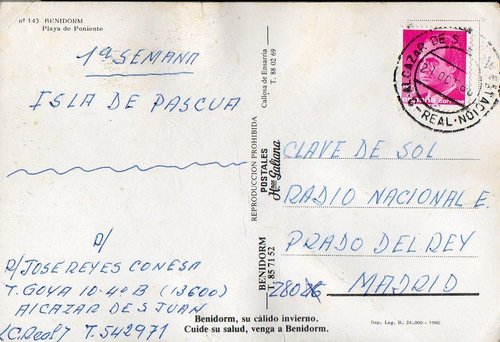 nº 143 BENIDORM
Playa de Poniente
1ª SEMANA
ISLA DE PASCUA
R/
R/ JOSE REYES CONESA
T. GOYA 10-4º B (13600)
ALCAZAR DE S JUAN
(C. Real) T. 542971
Benidorm, su cálido invierno.
Cuide su salud, venga a Benidorm.
REPRODUCCION PROHIBIDA
Callosa de Ensarria
T. 88 02 69
POSTALES
Hnos Galiana
BENIDORM
T. 85 71 52
ALCAZAR DE S.
-REAL-
CLAVE DE SOL
RADIO NACIONAL E.
PRADO DEL REY
28026 MADRID
Dep. Leg. B. 24.000 - 1980